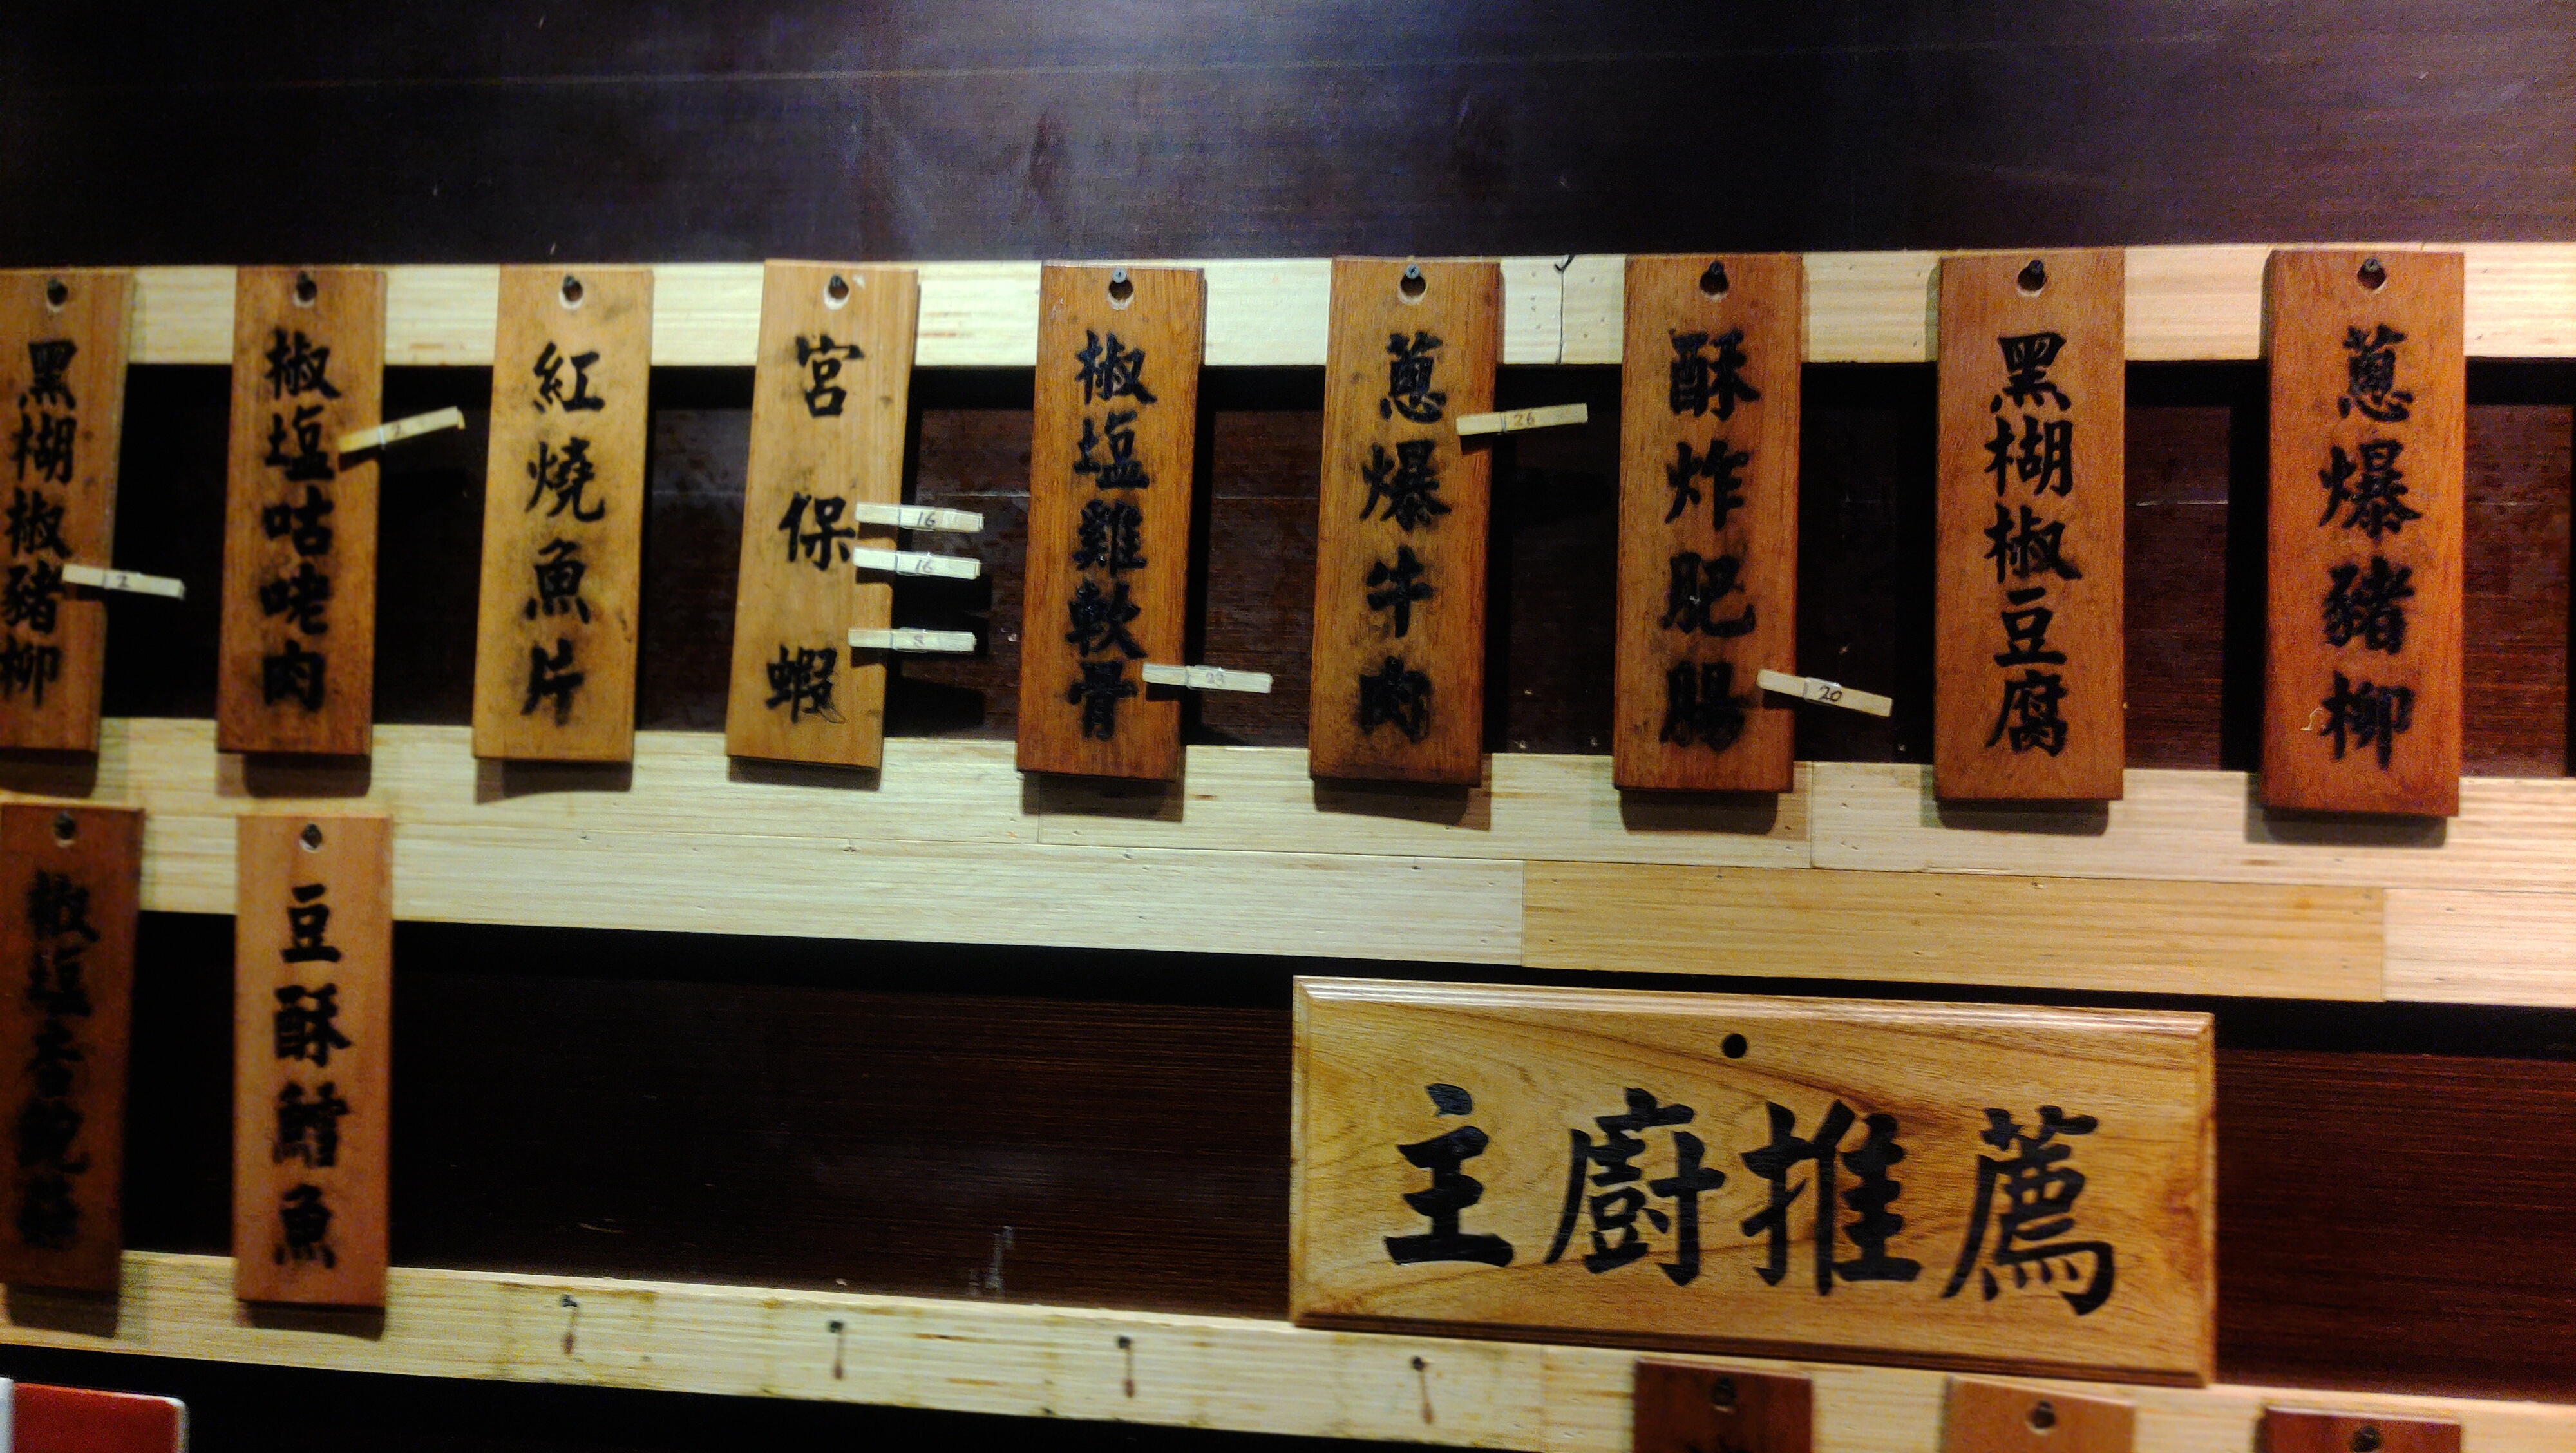 黑楜椒豬柳
2
椒塩咕咾肉
2
紅燒魚片
宮保蝦
16
16
8
椒塩雞軟骨
23
蔥爆牛肉
26
酥炸肥腸
20
黑楜椒豆腐
蔥爆豬柳
椒塩杏鮑菇
豆酥鱈魚
主廚推薦